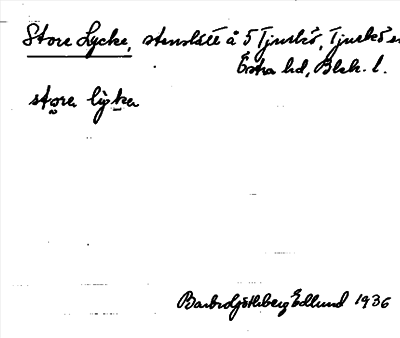 Store Lycke, stenslätt å 5 Tjurkö, Tjurkö sn
Östra hd, Blek. l.
stora lyka
Barbro Götheberg Edlund 1936